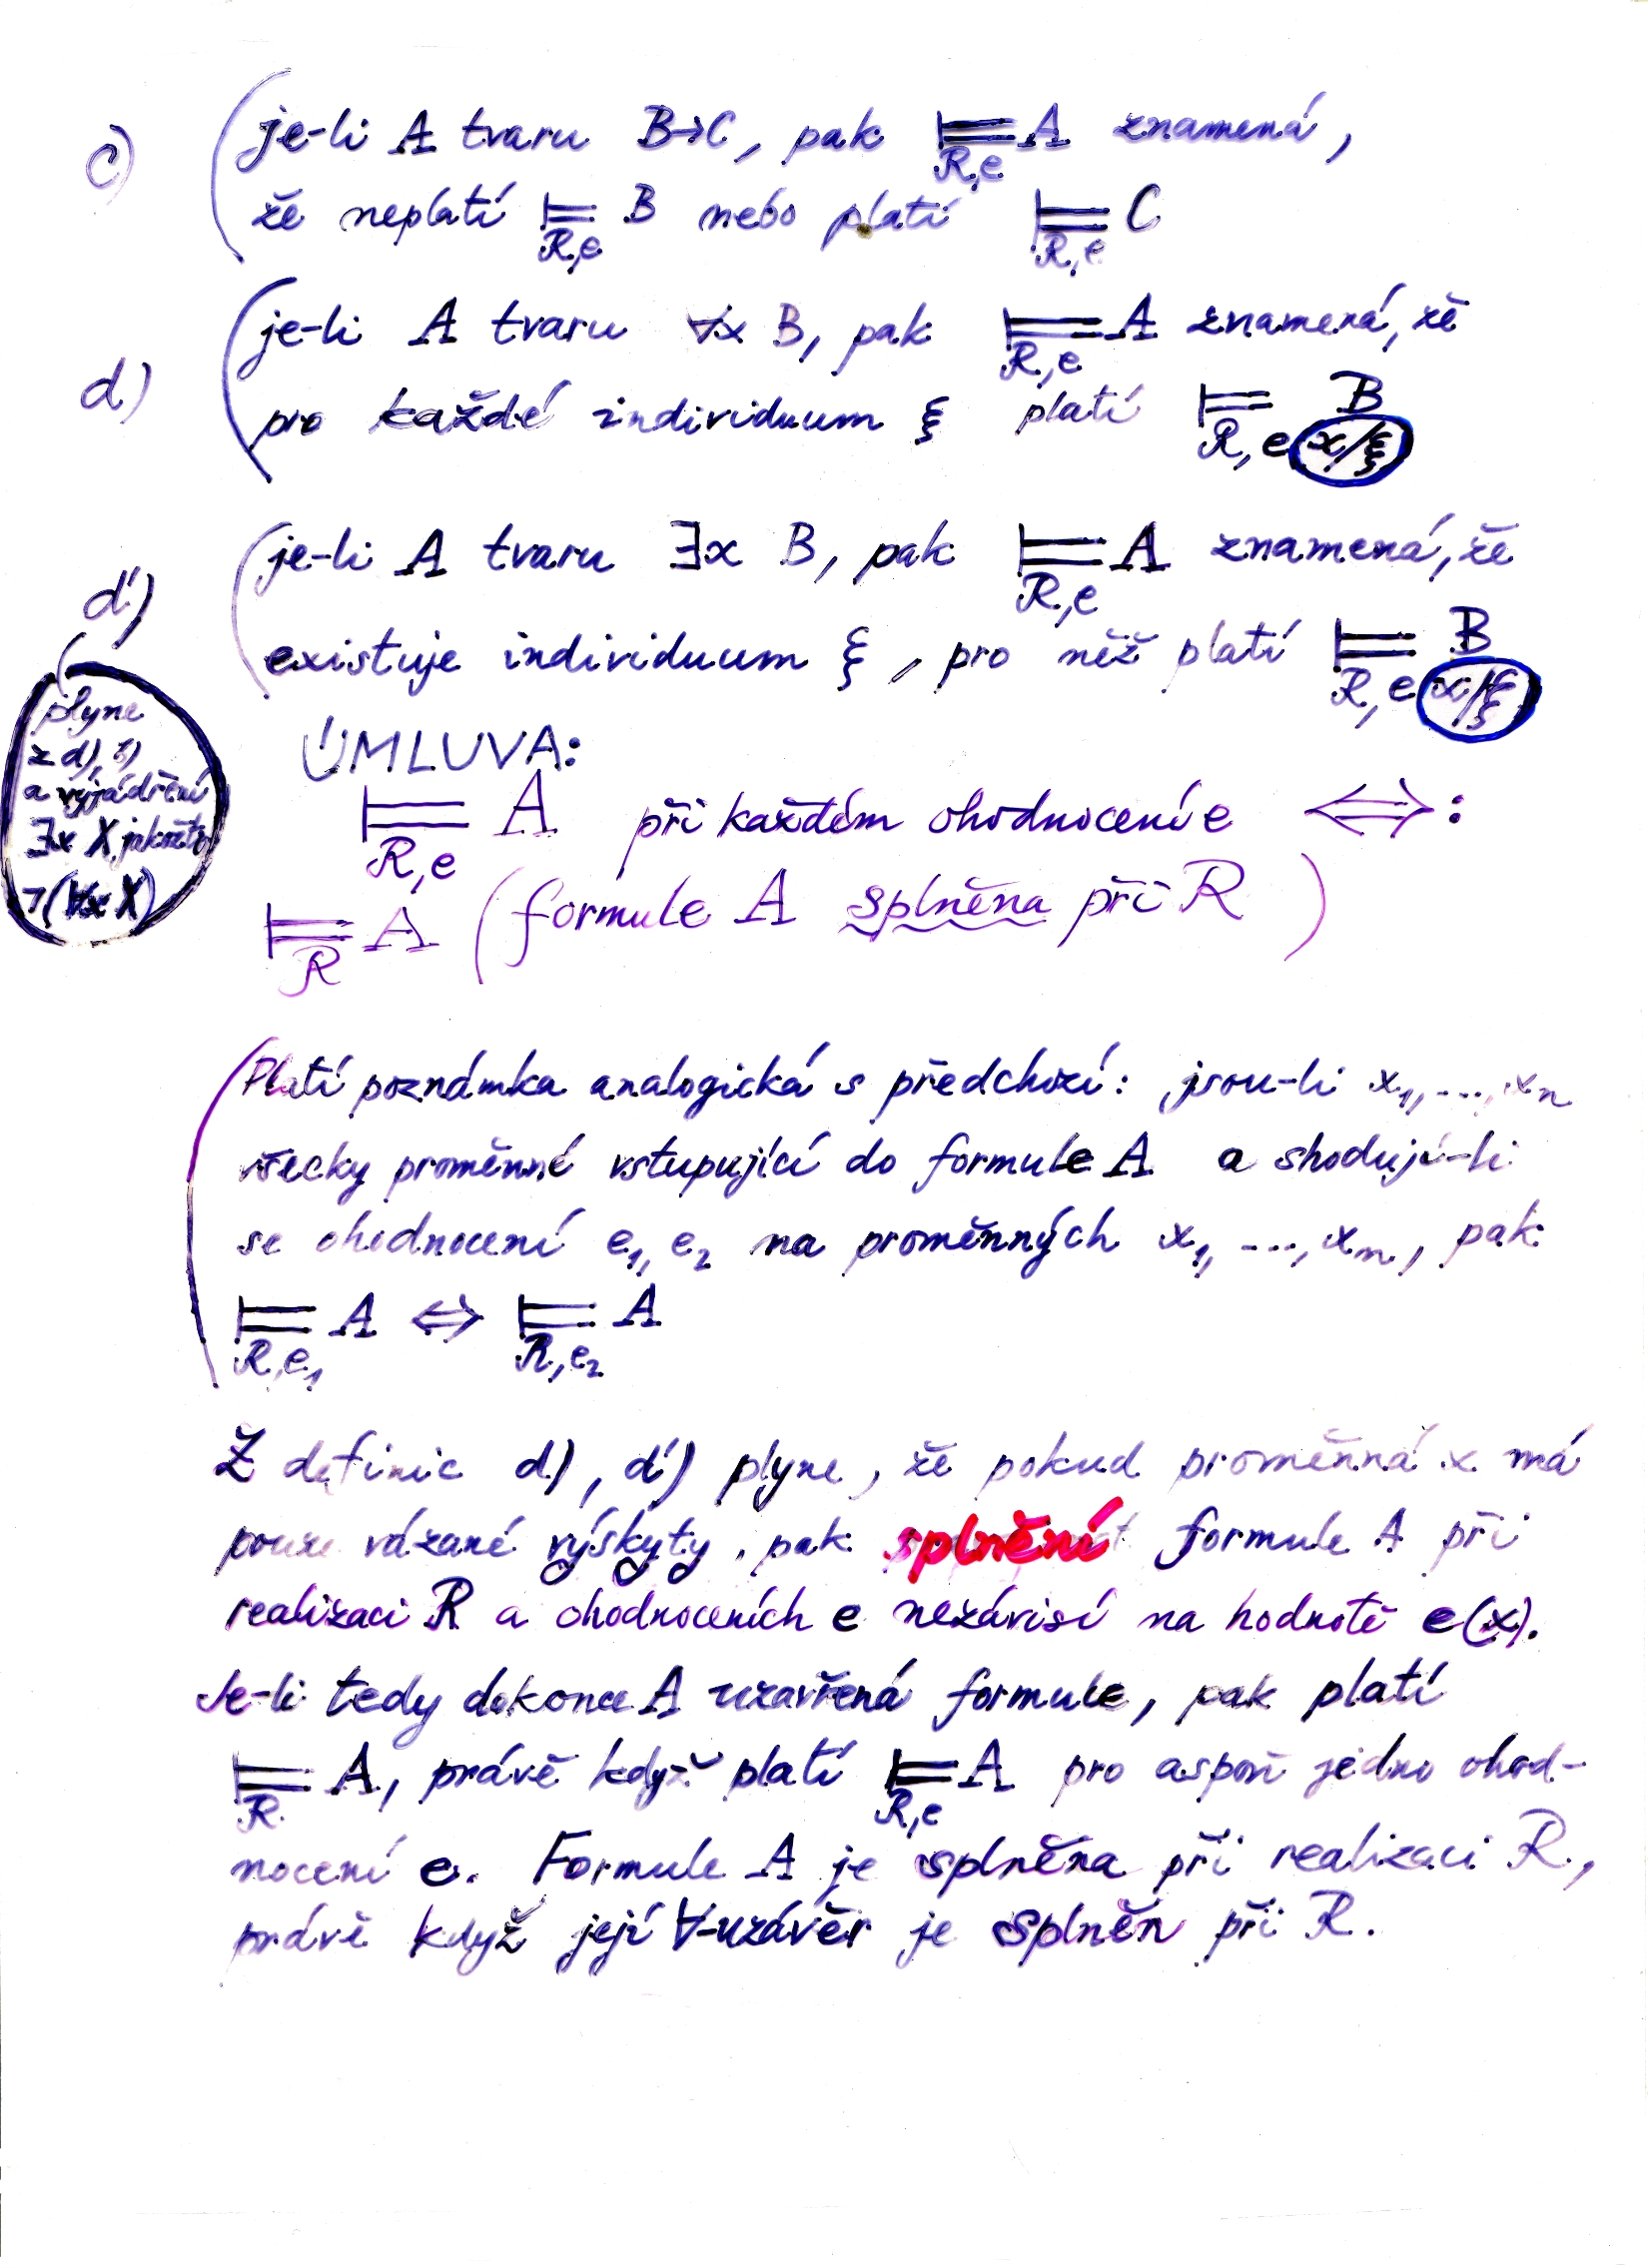 c) je-li A tvaru B→C, pak ⊨ A znamená,
R,e
že neplatí ⊨ B nebo platí ⊨ C
R,e R,e
je-li A tvaru ∀x B, pak ⊨ A znamená, že
R,e
d) pro každé individuum ξ platí ⊨ B
R, e x/ξ
je-li A tvaru ∃x B, pak ⊨ A znamená, že
R,e
d') existuje individuum ξ, pro něž platí ⊨ B
R, e x/ξ
plyne
z d),
a vyjádření
∃x X jakožto
¬(∀x X)
ÚMLUVA:
⊨ A při každém ohodnocení e ⟺:
R,e
⊨ A (formule A splněna při R)
R
Platí poznámka analogická s předchozí: jsou-li x₁, ..., xₙ
všecky proměnné vstupující do formule A a shodují-li
se ohodnocení e₁, e₂ na proměnných x₁, ..., xₙ, pak
⊨ A ⇔ ⊨ A
R,e₁ R,e₂
Z definic d), d') plyne, že pokud proměnná x má
pouze vázané výskyty, pak splnění formule A při
realizaci R a ohodnoceních e nezávisí na hodnotě e(x).
Je-li tedy dokonce A uzavřená formule, pak platí
⊨ A, právě když platí ⊨ A pro aspoň jedno ohod-
R R,e
nocení e. Formule A je splněna při realizaci R,
právě když její ∀-uzávěr je splněn při R.